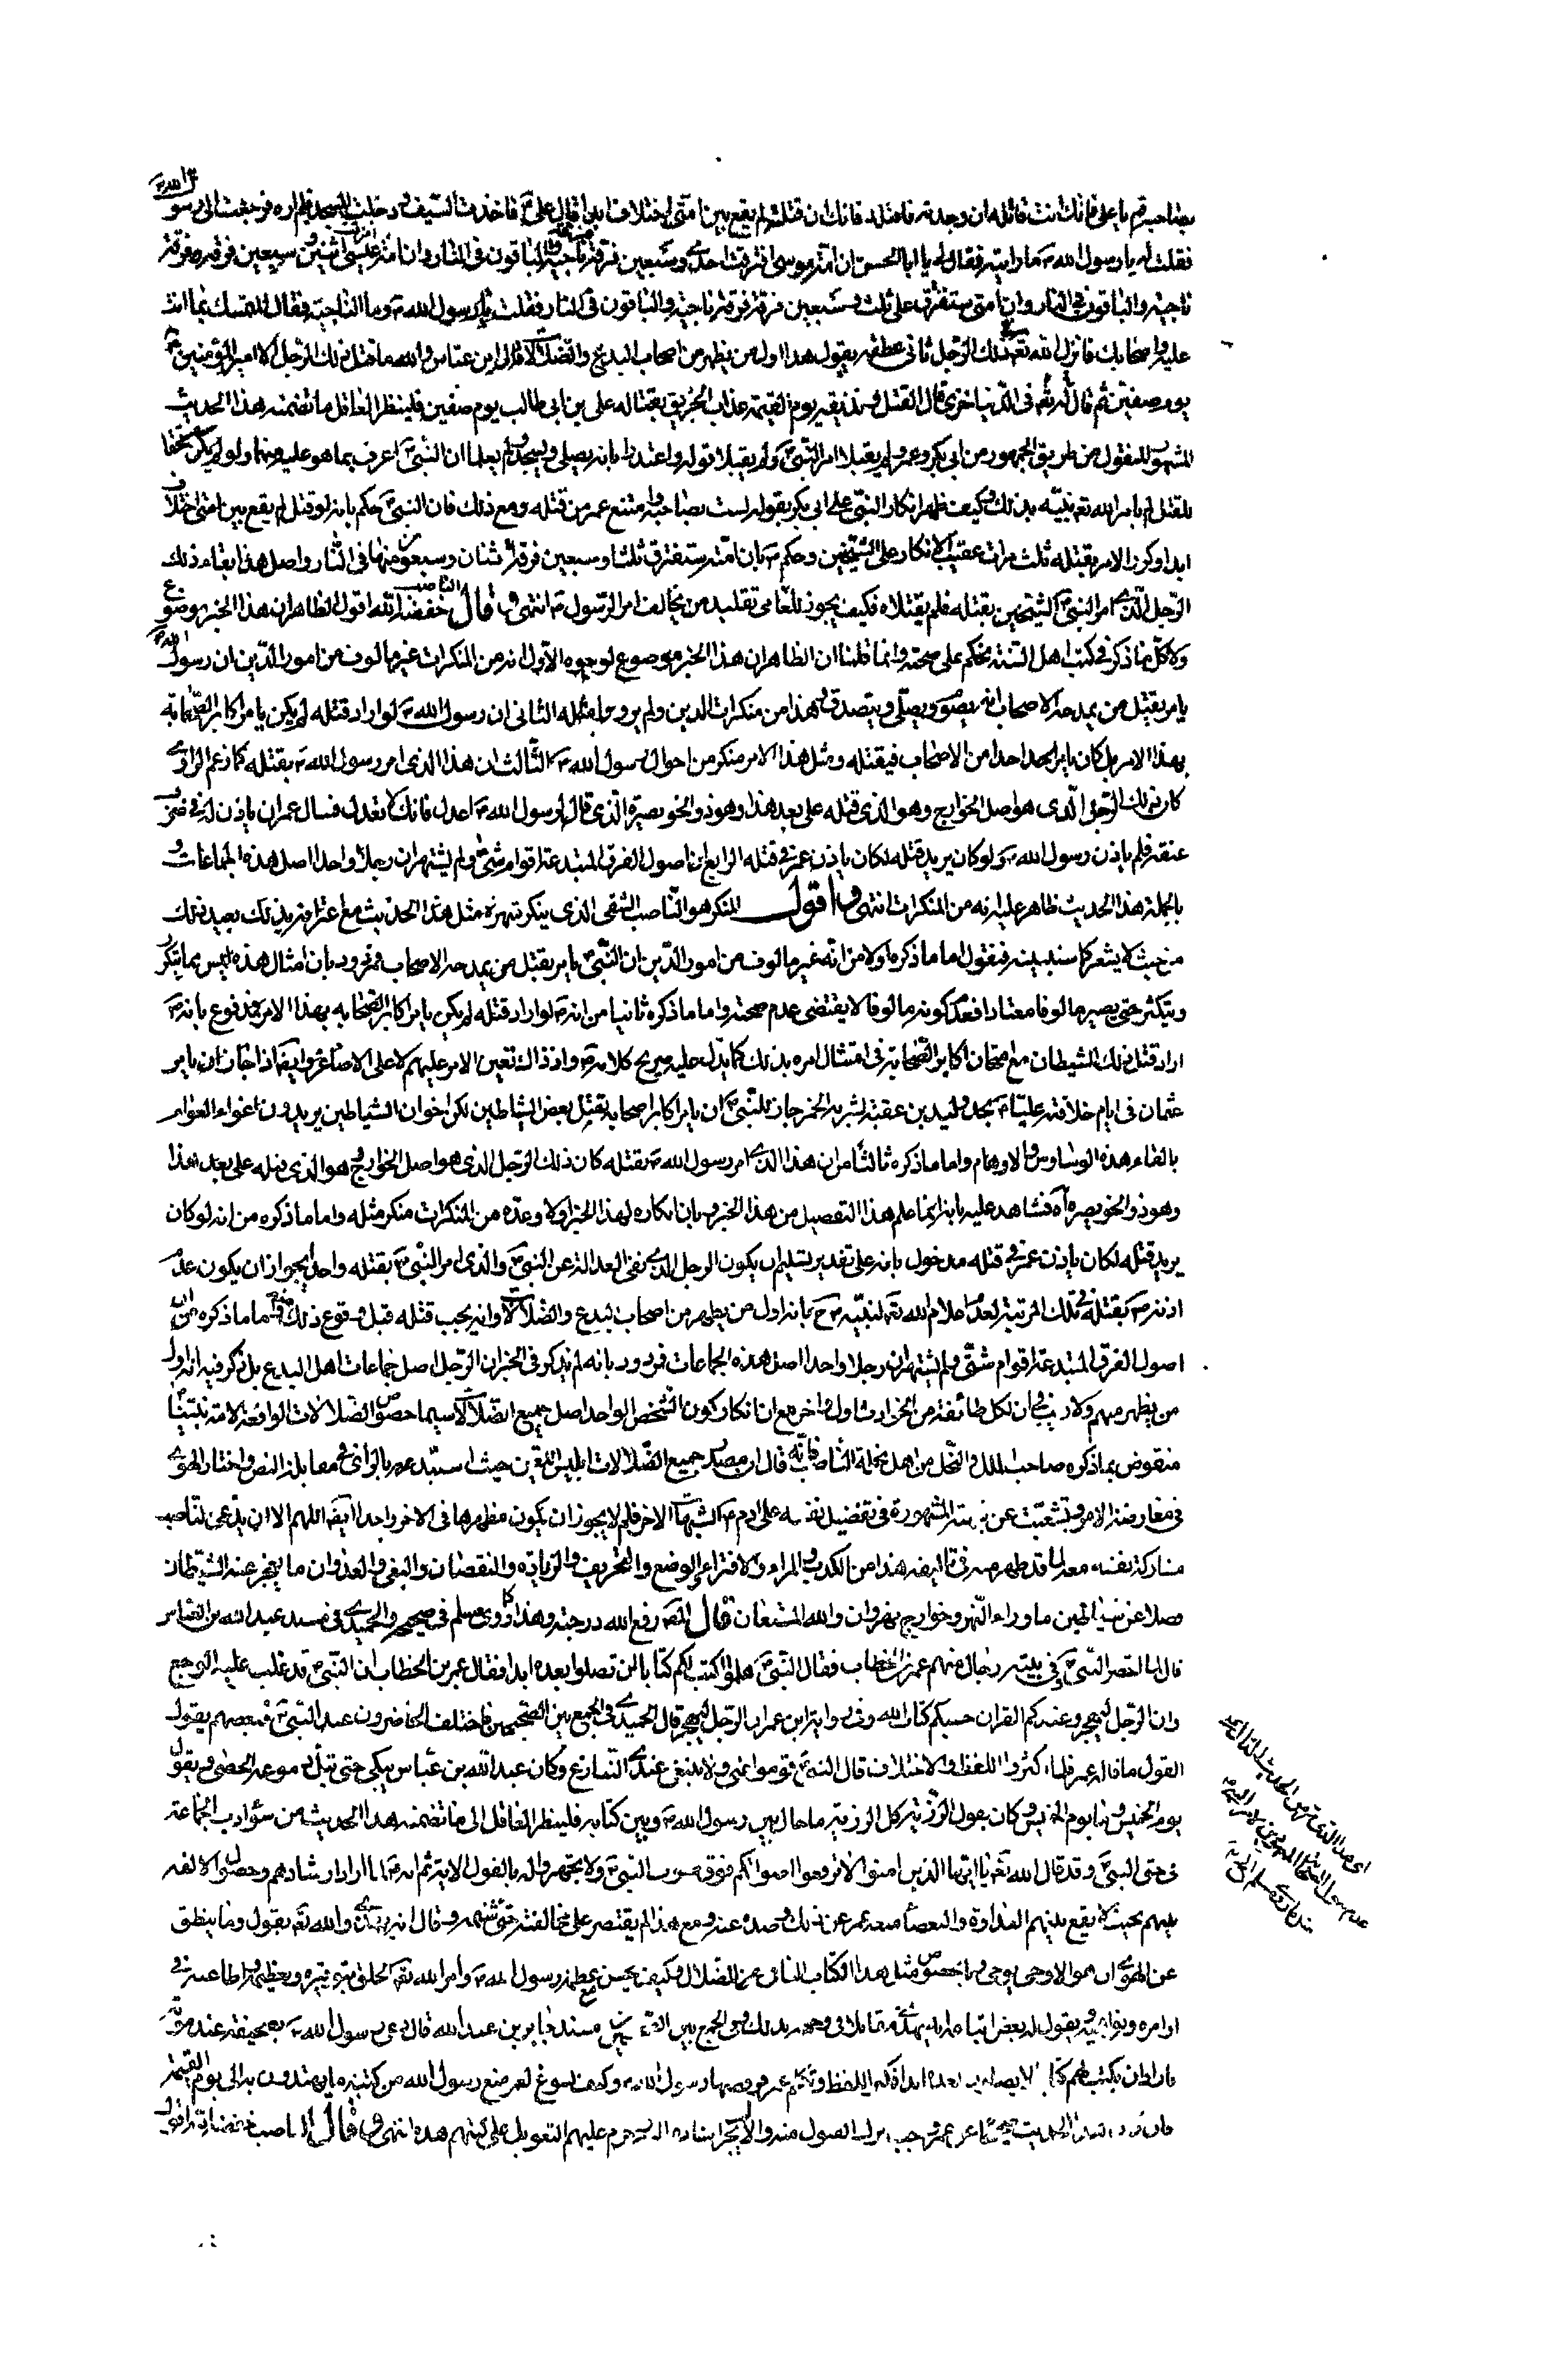 بصاحبه قم يا علي فانك انت قاتله ان وجدته فاقتله فانك ان قتلته لم يقع بين امتي اختلاف ابدا قال علي ع فاخذت السيف و دخلت المسجد فلم اره فرجعت الى رسول الله ص
فقلت له يا رسول الله ص ما رايته فقال لي يا ابا الحسن ان امة موسى افترقت احدى و سبعين فرقة فرقة ناجية و الباقون في النار و ان امة عيسى افترقت اثنين و سبعين فرقة فرقة
ناجية و الباقون في النار و ان امتي ستفترق على ثلث و سبعين فرقة فرقة ناجية و الباقون في النار فقلت يا رسول الله ص و ما الناجية فقال المتمسك بما انت
عليه و اصحابك فانزل الله تع في ذلك الرجل ثاني عطفه يقول هذا اول من يظهر من اصحاب البدع و الضلالات قال ابن عباس و الله ما قتل ذلك الرجل الا امير المؤمنين ع
يوم صفين ثم قال له في الدنيا خزي قال القتل و نذيقه يوم القيمة عذاب الحريق بقتاله علي بن ابي طالب يوم صفين فلينظر العاقل ما تضمنه هذا الحديث
المشهور المنقول من طريق الجمهور من ابي بكر و عمر و لم يقبلا امر النبي ص و لم يقبلا قوله و اعتذرا بانه يصلي و يسجد و لم يعلما ان النبي ص اعرف بما هو عليه منهما و لو لم يكن مستحقا
للقتل لم يامر الله تع نبيه بذلك و كيف ظهر انكار النبي ص على ابي بكر بقوله لست بصاحبه و امتنع عمر من قتله و مع ذلك فان النبي ص حكم بانه لو قتل لم يقع بين امتي اختلاف
ابدا و كرر الامر بقتله ثلث مرات عقيب الانكار على الشيخين و حكم ص بان امته ستفترق ثلثا و سبعين فرقة اثنان و سبعون منها في النار و اصل هذا بقاء ذلك
الرجل الذي امر النبي ص الشيخين بقتله فلم يقتلاه فكيف يجوز للعامي تقليد من يخالف امر الرسول ص انتهى و قال الناصب خفضه الله اقول الظاهر ان هذا الخبر موضوع
و لا كل ما ذكر في كتب اهل السنة يحكم على صحته و انما قلنا ان الظاهر ان هذا الخبر موضوع لوجوه الاول انه من المنكرات غير مالوف من امور الدين ان رسول الله ص
يامر بقتل من يمدحه الاصحاب انه يصوم و يصلي و يتصدق و هذا من منكرات الدين و لم يرو مثله الثاني ان رسول الله ص لو اراد قتله لم يكن يامر اكابر الصحابة
بهذا الامر بل كان يامر احدا من الاصحاب فيقتله و مثل هذا الامر منكر من احوال رسول الله ص الثالث ان هذا الذي امر رسول الله ص بقتله كما زعم الراوي
كان ذلك الرجل الذي هو اصل الخوارج و هو الذي قتله علي بعد هذا و هو ذو الخويصرة الذي قال لرسول الله ص اعدل فانك لا تعدل فسال عمر ان ياذن له في ضرب
عنقه فلم ياذن رسول الله ص و لو كان يريد قتله لكان ياذن عمر في قتله الرابع ان اصول الفرق المبتدعة اقوام شتى و لم يشتهر ان رجلا واحدا اصل هذه الجماعات و
بالجملة هذا الحديث ظاهر عليه انه من المنكرات انتهى و اقول المنكر هو الناصب الشقي الذي ينكر شهرة مثل هذا الحديث مع اعترافه بذلك بعيد ذلك
من حيث لا يشعر كما سنبينه فنقول اما ما ذكره اولا من انه غير مالوف من امور الدين ان النبي ص يامر بقتل من يمدحه الاصحاب فمردود بان امثال هذه ليس مما يتكرر
و يتكثر حتى يصير مالوفا معتادا فعدم كونه مالوفا لا يقتضي عدم صحته و اما ما ذكره ثانيا من انه ص لو اراد قتله لم يكن يامر اكابر الصحابة بهذا الامر فمدفوع بانه ص
اراد قتل ذلك الشيطان مع امتحان اكابر الصحابة في امتثال امره بذلك كما يدل عليه صريح كلامه ص و اذ ذاك تعين الامر عليهم لا على الاصاغر و ايضا اذا جاز ان يامر
عثمان في ايام خلافته عليا ع بحد وليد بن عقبة لشربه الخمر جاز للنبي ص ان يامر اكابر اصحابه بقتل بعض الشياطين لكن اخوان الشياطين يريدون اغواء العوام
بالقاء هذه الوساوس و الاوهام و اما ما ذكره ثالثا من ان هذا الذي امر رسول الله ص بقتله كان ذلك الرجل الذي هو اصل الخوارج و هو الذي قتله علي بعد هذا
و هو ذو الخويصرة آه فشاهد عليه بانه انما علم هذا التفصيل من هذا الخبر و بان انكاره لهذا الخبر اولا و عده من المنكرات منكر مثله و اما ما ذكره من انه لو كان
يريد قتله لكان ياذن عمر في قتله مدخول بانه على تقدير تسليم ان يكون الرجل الذي نفى العدالة عن النبي ص و الذي امر النبي ص بقتله واحدا يجوز ان يكون عدم
اذنه ص بقتله في تلك المرتبة لعدم اعلام الله تع لنبيه ص ح بانه اول من يظهر من اصحاب البدع و الضلالات و انه يجب قتله قبل وقوع ذلك منه و اما ما ذكره من ان
اصول الفرق المبتدعة اقوام شتى و لم يشتهر ان رجلا واحدا اصل هذه الجماعات فمردود بانه لم يذكر في الخبر ان الرجل اصل جماعات اهل البدع بل ذكر فيه انه اول
من يظهر منهم و لا ريب في ان لكل طائفة من الحوادث اول و آخر مع ان انكار كون الشخص الواحد اصل جميع الضلالات لا سيما خصوص الضلالات الواقعة لامة نبينا ص
منقوض بما ذكره صاحب الملل و النحل من اهل نحلة الناصب فانه قال ان مصدر جميع الضلالات ابليس اللعين حيث استبد بالراي في مقابلة النص و اختار الهوى
في معارضة الامر و تشعبت عن شبهته المشهورة في تفضيل نفسه على ادم ع الشبهات الاخر فلم لا يجوز ان يكون مظهرها في الاخر واحدا ايضا اللهم الا ان يدعي الناصب
مشاركة نفسه معه لما قد ظهر منه في تاليفه هذا من الكذب و المراء و الافتراء و الوضع و التحريف و الزيادة و النقصان و البغي و العدوان ما يعجز عنه الشيطان
فضلا عن شياطين ما وراء النهر و خوارج نهروان و الله المستعان قال المص رفع الله درجته و هذا كما روى مسلم في صحيحه و الحميدي في مسند عبد الله بن العباس
قال لما احتضر النبي ص و في بيته رجال منهم عمر بن الخطاب فقال النبي ص هلموا اكتب لكم كتابا لن تضلوا بعده ابدا فقال عمر بن الخطاب ان النبي ص قد غلب عليه الوجع
و ان الرجل ليهجر و عندكم القران حسبكم كتاب الله و في رواية ابن عمر ان الرجل ليهجر قال الحميدي في الجمع بين الصحيحين فاختلف الحاضرون عند النبي ص فبعضهم يقول
القول ما قاله عمر فلما اكثروا اللغط و الاختلاف قال النبي ص قوموا عني و لا ينبغي عندي التنازع و كان عبد الله بن عباس يبكي حتى تبل دموعه الحصى و يقول
يوم الخميس و ما يوم الخميس و كان يقول الرزية كل الرزية ما حال بين رسول الله ص و بين كتابه فلينظر العاقل الى ما تضمنه هذا الحديث من سوء ادب الجماعة
في حق النبي ص و قد قال الله تع يا ايها الذين امنوا لا ترفعوا اصواتكم فوق صوت النبي و لا تجهروا له بالقول الاية ثم انه ص لما اراد ارشادهم و حصول الالفة
بينهم بحيث لا يقع بينهم العداوة و البغضاء منعه عمر عن ذلك و صده عنه و مع هذا لم يقتصر على مخالفته حتى شتمه و قال انه يهذي و الله تع يقول و ما ينطق
عن الهوى ان هو الا وحي يوحى و بخصوص مثل هذا الكتاب النافي عن الضلال و كيف يحسن مع عظمة رسول الله ص و امر الله تع الخلق بتوقيره و تعظيمه و اطاعته في
اوامره و نواهيه يقول له بعض اتباعه انه يهذي مقابلا في وجهه بذلك و في الجمع بين الصحيحين مسند جابر بن عبد الله قال دعى رسول الله ص بصحيفة عند موته
فاراد ان يكتب لهم كتابا لا يضلون بعده ابدا فكثر اللغط و تكلم عمر فرفضها رسول الله ص و كيف يسوغ لعمر منع رسول الله من كتبة ما يهتدون به الى يوم القيمة
فان كان هذا الحديث صحيحا عن عمر وجب ترك القبول منه و الا يحرم عليهم التعويل على كتبهم هذه انتهى و قال الناصب خفضه الله اقول